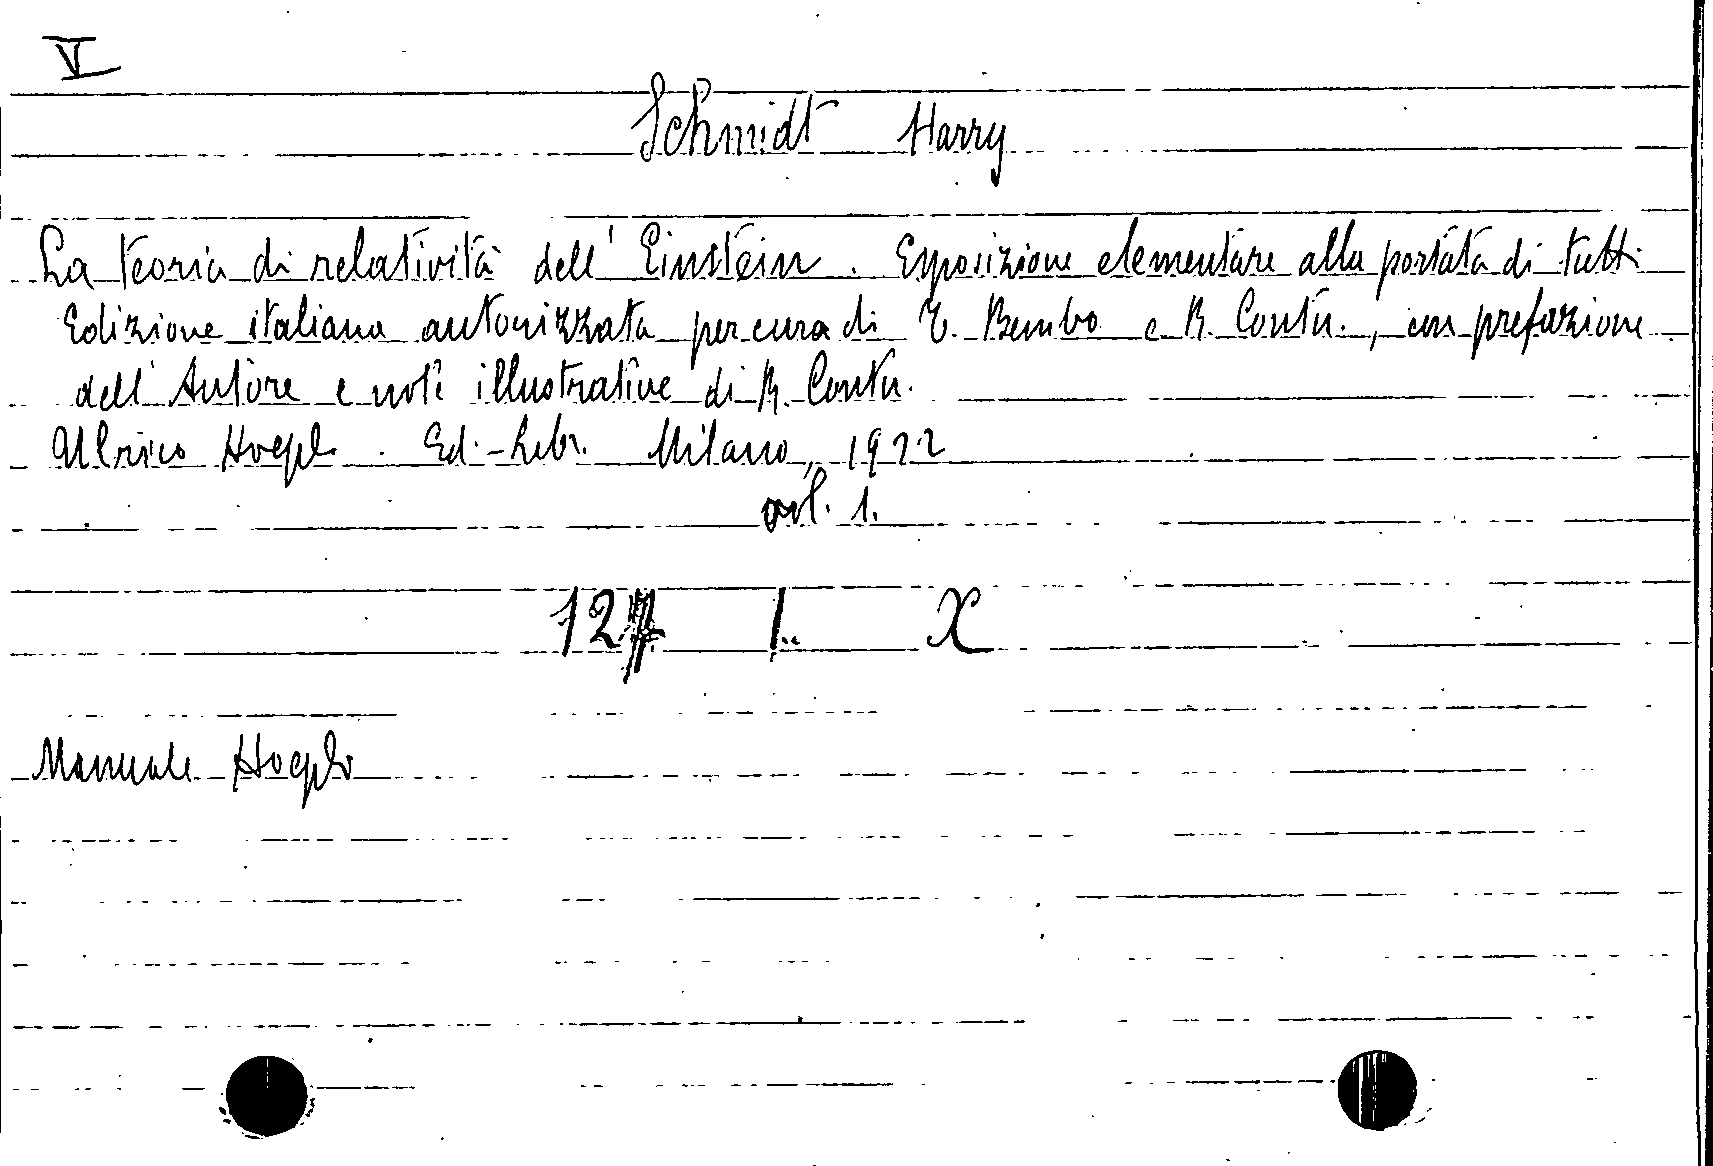 V
Schmidt Harry
La teoria di relatività dell'Einstein. Esposizione elementare alla portata di tutti
Edizione italiana autorizzata per cura di E. Bembo e R. Contu., con prefazione
dell'Autore e note illustrative di R. Contu.
Ulrico Hoepli. Ed.-Libr. Milano, 1922
vol. 1.
12 I. X
Manuale Hoepli